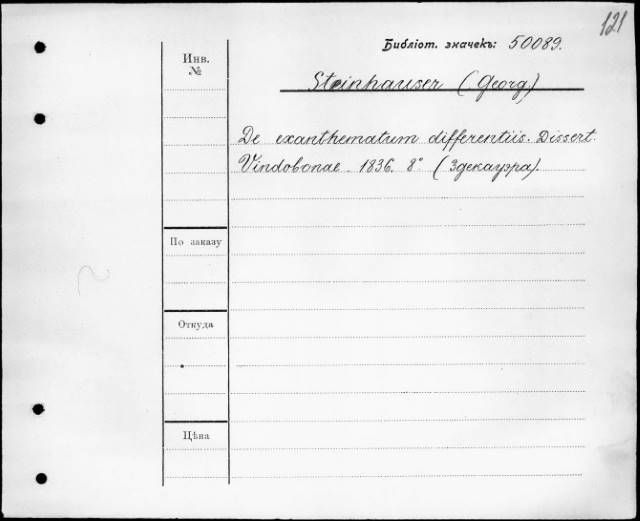 121
Библіот. значекъ: 50089.
Инв.
№
Steinhauser (Georg)
De exanthematum differentiis. Dissert.
Vindobonae. 1836. 8° (Здекауэра).
По заказу
Откуда
Цѣна